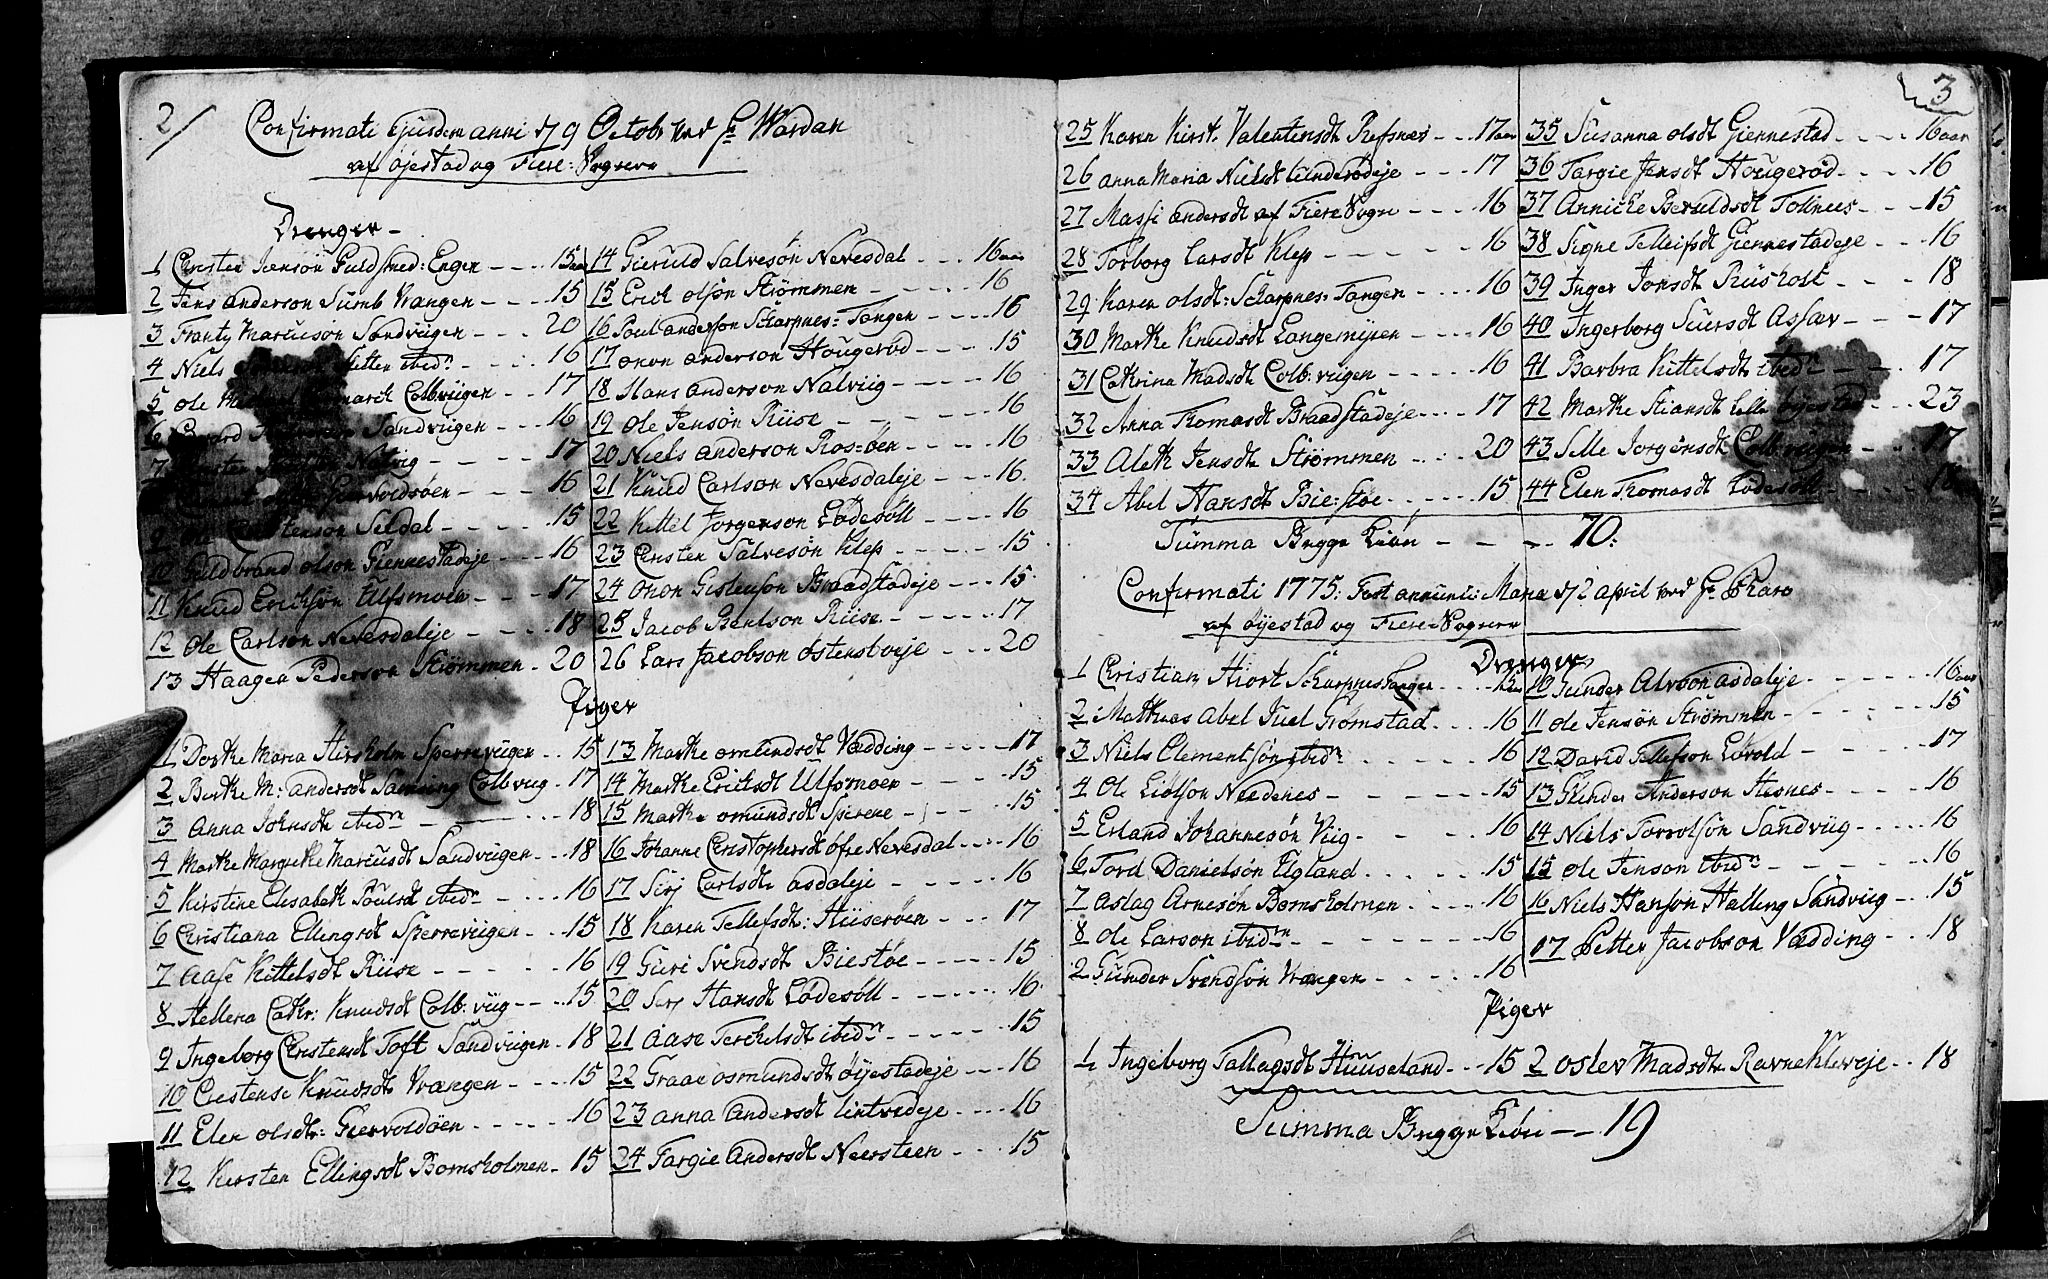 2/
Confirmati Ejusdem anni d 9 Octobr ved Hr Wardan
af øjestad og Fiere: Sogrne
Drenger
1 Christen Jensøn Guldsmed: Engen - - - 15 aar
2 Jens anderson Sumb Vrangen - - - 15
3 Frantz Marcusøn Sandviigen - - - 20
4 Niels Petter ibidm - - - 16
5 Ole Colbviigen - - - 17
6 Sandviigen - - - 16
7 Christen Natvig - - - 17
Giervoldsøen - - - 16
9 Ole Christenson Seldal - - - 15
10 Guldbrand olson Giennestadeje - - 16
11 Knud Erichsøn Ulfsmoen - - - 17
12 Ole Carlson Nevesdaleje - - - 18
13 Haagen Pederson Strømmen - 20
14 Gieruld Salvesøn Nevesdal - - - 16 aar
15 Erich olsøn Strømmen - - - 16
16 Poul anderson Scharpnes: Tangen - - 16
17 onon anderson Hougerød - - - 15
18 Hans anderson Natviig - - - 16
19 Ole Jensøn Riise - - - 16
20 Niels anderson Ros-øen - - - 16
21 Knud Carlson Nevesdaleje - - - 16
22 Kittel Jørgenson Lødesøll - - - 16
23 Christen Salvesøn Klep - - - 15
24 Onon Gislenson Braadstadeje - - - 15
25 Jacob Bentson Riise - - - 17
26 Lars Jacobson østensbveje - - - 20
Piger
1 Dorthe Maria Hirsholm Sperreviigen - - 15
2 Birthe M: andersdt Samsing Colbviig - 17
3 Anna Johnsdt ibidm - - - 18
4 Marthe Margrethe Marcusdt Sandviigen - - 18
5 Kirstine Elisabeth Poulsdt ibidm - - - 16
6 Christiana Ellingsdt Sperreviigen - - 15
7 Aase Kittelsdt Riise - - - 16
8 Hellena Cathr: Knudsdt Colb: viig - - 15
9 Ingeborg Christensdt Toft Sandviigen - 18
10 Chrestense Knudsdt Vrangen - - - 15
11 Elen olsdtr: Giervoldøen - - - 16
12 Kirsten Ellingsdt Bomsholmen - 15
13 Marthe omundsdt Vædding - - - 17
14 Marthe Erichsdt Ulfsmoen - - - 15
15 Marthe omundsdt Spirene - - - 15
16 Johanne Christophersdt øfre Nevesdal - - - 16
17 Sirj Carlsdtr asdaleje - - - 16
18 Karen Tellefsdt: Huserøen - - - 17
19 Guri Svendsdt Biestøe - - - 15
20 Sirj Hansdt Lødesøll - - - 16
21 Aase Terkelsdt ibidm - - - 15
22 Graae osmundsdt øyestadeje - - - 16
23 anna Andersdt lintvedeje - - - 16
24 Targie Andersdt Neersteen - - - 15
3
25 Karen Kirst. Valentinsdt Refsnes - - 17 aar
26 anna Maria Nielsdt Lunderødeje - - - 17
27 Massi andersdt af Fiere Sogn - - - 16
28 Torborg Larsdt Klep - - - 16
29 Karen olsdt: Scharpnes: Tangen - - - 16
30 Marthe Knudsdt Langemyren - - - 16
31 Cathrina Madsdt Colb: viigen - - - 16
32 Anna Thomasdt Braadstadeje - - - 17
33 Aleth Jensdt Strømmen - - - 20
34 Abel Hansdt Bie: støe - - - 15
35 Susanna olsdt Giennestad - - - 16 aar
36 Targie Jensdt Hougerød - - - 16
37 Anniche Berulds dt Tollnes - - - 15
38 Signe Tellefsdt Giennestadeje - - 16
39 Inger Jonsdt Rusholt - - - 18
40 Ingerborg Siursdt Assæv - - - 17
41 Barbra Kittelsdt ibidm - - - 17
42 Marthe Stiansdt Lille øyestad - - - 23
43 Sille Jorgensdt Colb: viigen - - - 17
44 Elen Thomasdt Lødesøll - - - 18
Summa Begge Kiøn - - - 70:
Confirmati 1775: Fest annunti: Maria d 2 april ved Hr Tharo
af øyestad og Fiere Sogrne
Drenger
1 Christian Hiort Scharpnes tangen - - - 15 aar
2 Mathias Abel Juel Gromstad - - - 16
3 Niels Clementsøn ibidm - - - 16
4 Ole Liølson Nædenes - - - 15
5 Erland Johannesøn Viig - - - 16
6 Tord Danielsøn Ugland - - - 15
7 Aslag Arnesøn Bomsholmen - - - 16
8 Ole Larson ibidm - - - 16
2 Gunder Svendsøn Vrangen - - - 16
10 Gunder Alvson asdaleje - - - 16 aar
11 Ole Jensøn Strømmen - - - 15
12 David Tellefson Lovold - - - 17
13 Gunder Anderson Hesnes - - - 16
14 Niels Torvolsøn Sandviig - - - 16
15 Ole Jenson ibidm - - - 16
16 Niels Hanson Halling Sandviig - - - 15
17 Petter Jacobson Vædding - - 18
Piger
1 Ingeborg Tallagsdt Huuseland - - - 15
2 oslev Madsdtr Ravnekleveje - - 18
Summa Begge Kiøn - - 19